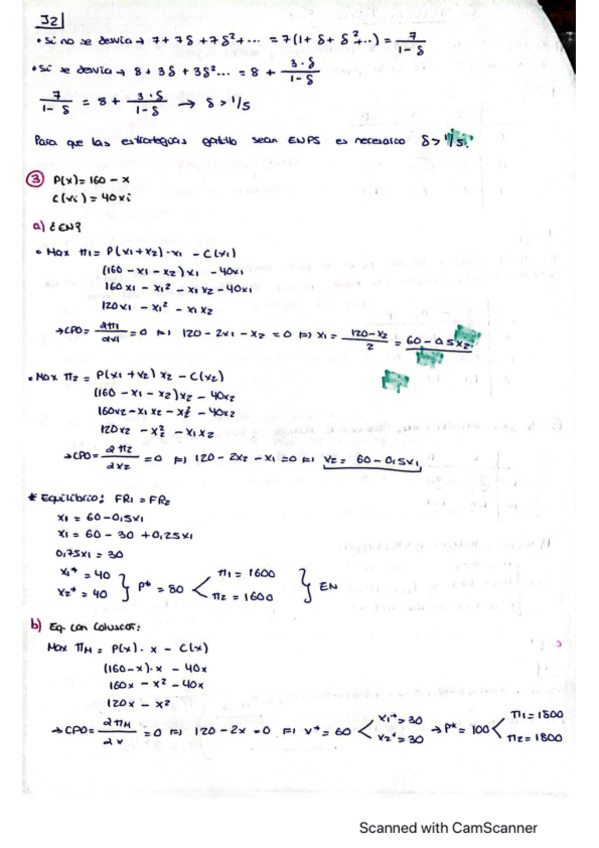 J2|
• Si no se desvía → 7 + 7δ + 7δ² + ... = 7(1 + δ + δ² + ...) = 7/(1 - δ)
• Si se desvía → 8 + 3δ + 3δ² ... = 8 + 3·δ/(1 - δ)
7/(1 - δ) = 8 + 3·δ/(1 - δ) → δ > 1/5
Para que las estrategias gatillo sean ENPS es necesario δ > 1/5.
③ P(x) = 160 - x
C(xi) = 40xi
a) ¿CN?
• Max π1 = P(x1 + x2)·x1 - C(x1)
(160 - x1 - x2)x1 - 40x1
160x1 - x1² - x1x2 - 40x1
120x1 - x1² - x1x2
→ CPO = ∂π1/∂x1 = 0 ⇒ 120 - 2x1 - x2 = 0 ⇒ x1 = (120 - x2)/2 = 60 - 0.5x2
• Max π2 = P(x1 + x2)x2 - C(x2)
(160 - x1 - x2)x2 - 40x2
160x2 - x1x2 - x2² - 40x2
120x2 - x2² - x1x2
→ CPO = ∂π2/∂x2 = 0 ⇒ 120 - 2x2 - x1 = 0 ⇒ x2 = 60 - 0,5x1
* Equilibrio: FR1 = FR2
x1 = 60 - 0,5x1
x1 = 60 - 30 + 0,25x1
0,75x1 = 30
x1* = 40
x2* = 40 } P* = 80 < π1 = 1600
π2 = 1600 } EN
b) Eq. con colusión:
Max πM = P(x)·x - C(x)
(160 - x)·x - 40x
160x - x² - 40x
120x - x²
→ CPO = ∂πM/∂x = 0 ⇒ 120 - 2x = 0 ⇒ x* = 60 < x1* = 30
x2* = 30 → P* = 100 < π1 = 1800
π2 = 1800
Scanned with CamScanner